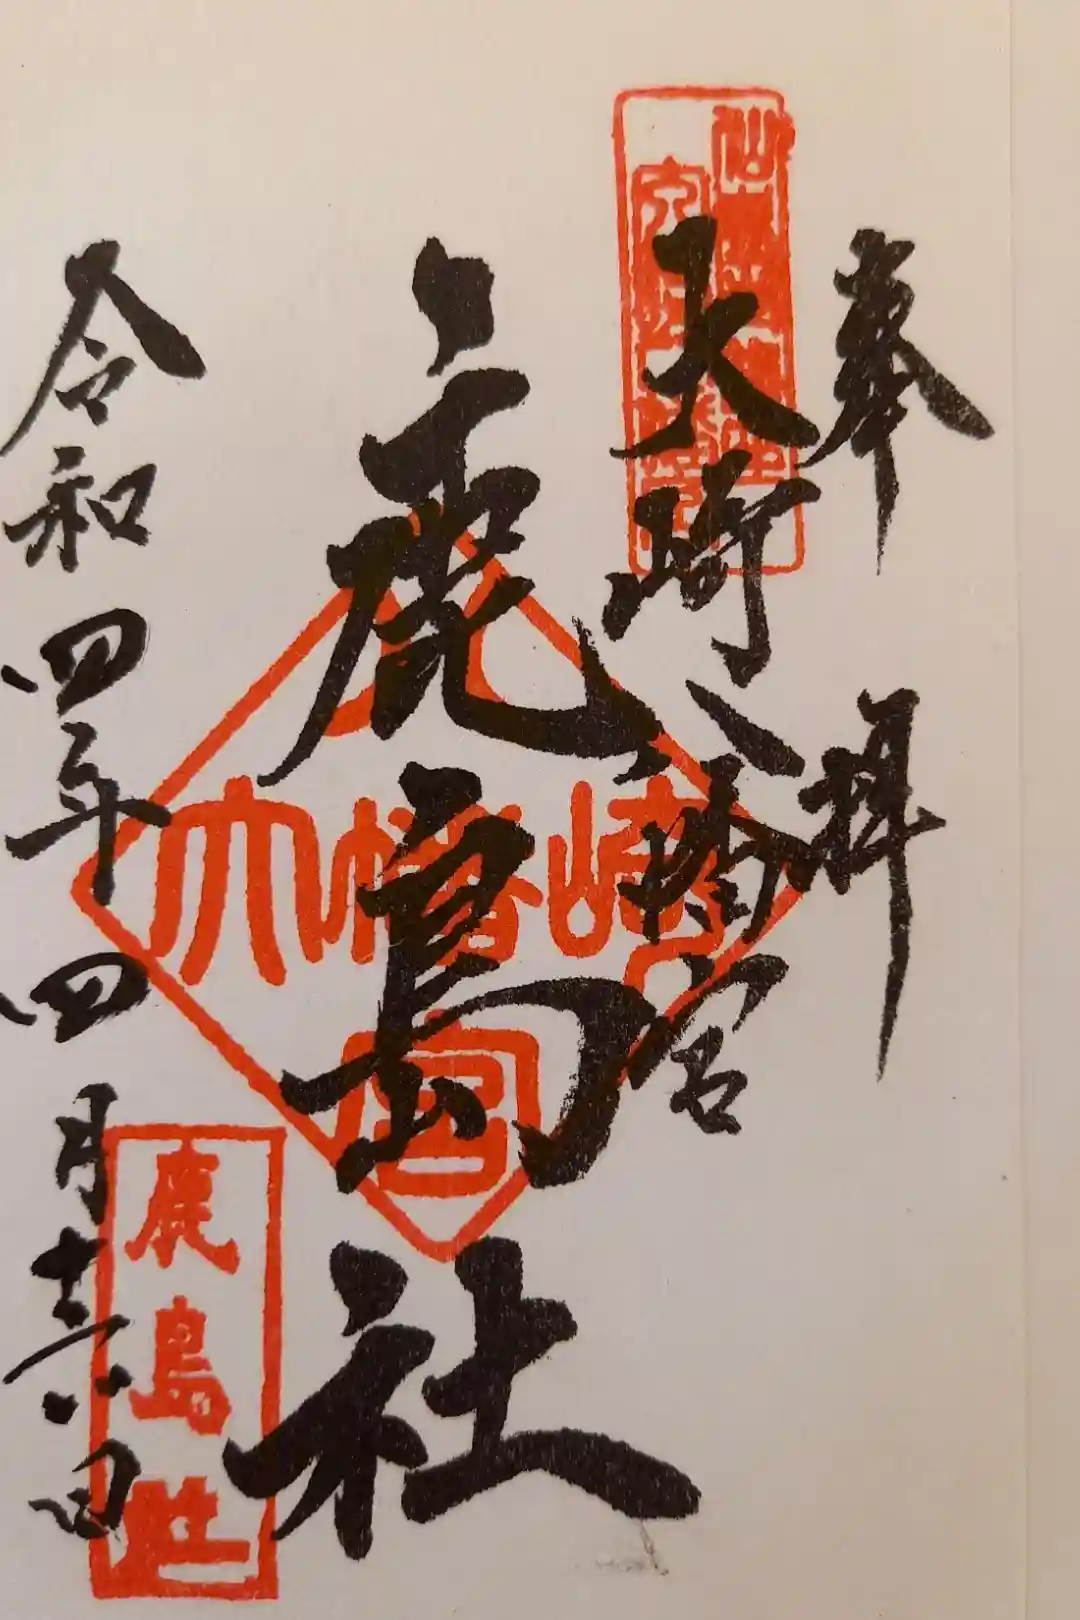 奉拝
大崎八幡宮
鹿島社
令和四年四月十六日
大崎八幡宮
鹿島社